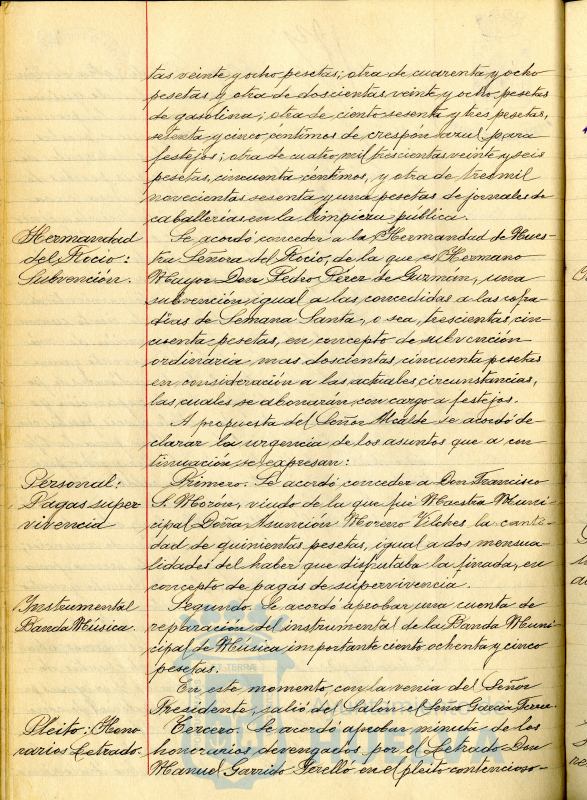 tas veinte y ocho pesetas; otra de cuarenta y ocho
pesetas, y otra de doscientas veinte y ocho pesetas
de gasolina; otra de ciento sesenta y tres pesetas,
setenta y cinco céntimos de crespón azul para
festejos; otra de cuatro mil trescientas veinte y seis
pesetas, cincuenta céntimos, y otra de tres mil
novecientas sesenta y una pesetas de jornales de
caballerías en la limpieza pública.
Hermandad
del Rocío:
Subvención.
Se acordó conceder a la Hermandad de Nues-
tra Señora del Rocío, de la que es Hermano
Mayor Don Pedro Pérez de Guzmán, una
subvención, igual a las concedidas a las cofra-
días de Semana Santa, o sea, trescientas cin-
cuenta pesetas, en concepto de subvención
ordinaria, mas doscientas cincuenta pesetas
en consideración a las actuales circunstancias,
las cuales se abonarán con cargo a festejos.
A propuesta del Señor Alcalde se acordó de-
clarar la urgencia de los asuntos que a con-
tinuación se expresan:
Personal:
Pagas super-
vivencia
Primero. Se acordó conceder a Don Francisco
S. Morón, viudo de la que fué Maestra Muni-
cipal Doña Asunción Moreno Vilches la canti-
dad de quinientas pesetas, igual a dos mensua-
lidades del haber que disfrutaba la finada, en
concepto de pagas de supervivencia.
Instrumental
Banda Música.
Segundo. Se acordó aprobar una cuenta de
reparación del instrumental de la Banda Muni-
cipal de Música importante ciento ochenta y cinco
pesetas.
En este momento, con la venia del Señor
Presidente, salió del Salón el Señor García
Pleito: Hono-
rarios Letrado.
Tercero. Se acordó aprobar minuta de los
honorarios devengados por el Letrado Don
Manuel Garrido Perelló en el pleito contencioso-